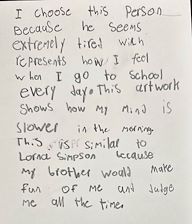 I choose this Person
Because he Seems
extremely tired wich
represents how I feel
when I go to School
every day. This artwork
Shows how my mind is
slower in the morning
This is similar to
Lorna Simpson because
my brother would make
fun of me and Judge
me all the time